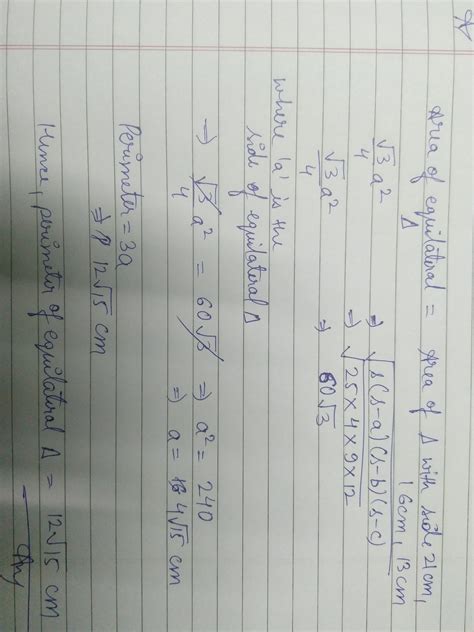 Area of equilateral Δ = Area of Δ with side 21cm, 16cm, 13cm
√3/4 a² ⇒ √s(s-a)(s-b)(s-c)
⇒ √25×4×9×12
√3/4 a² ⇒ 60√3
where 'a' is the
side of equilateral Δ
⇒ √3/4 a² = 60√3 ⇒ a² = 240
⇒ a = 4√15 cm
Perimeter = 3a
⇒ 12√15 cm
Hence, perimeter of equilateral Δ = 12√15 cm
Ans